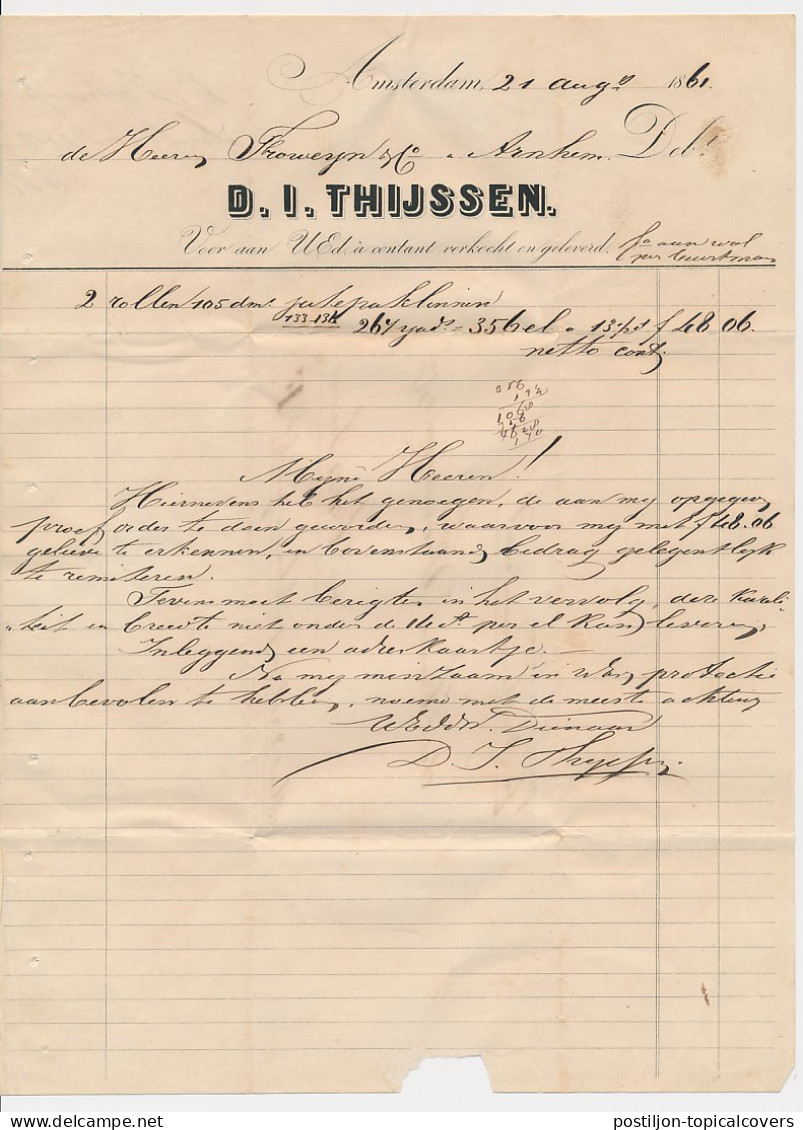 Amsterdam, 21 augs 1861.
de Heeren Froweyn & Co a Arnhem. Debt
D. I. THIJSSEN.
Voor aan UEd: à contant verkocht en geleverd. fo aan wal
per beurtman
2 rollen 105 dm: jute paklinnen
133-131 264 yads = 356 el a 13½ ct f 48 06.
netto cont:
Myne Heeren!
Hiernevens heb het genoegen, de aan my opgegeven
proef order te doen geworden, waarvoor my met f 48.06
gelieve te erkennen, en bovenstaand bedrag gelegentlyk
te remiteren.
Tevens moet berigten in het vervolg, deze kwali
teit en breedte niet onder de 14 ct per el kan leveren,
Inleggend een adres kaartje.
Na my minzaam in Uw protectie
aanbevolen te hebben, noeme met de meeste achting
UEdDW. Dienaar
D. I. Thyssen
postiljon-topicalcovers